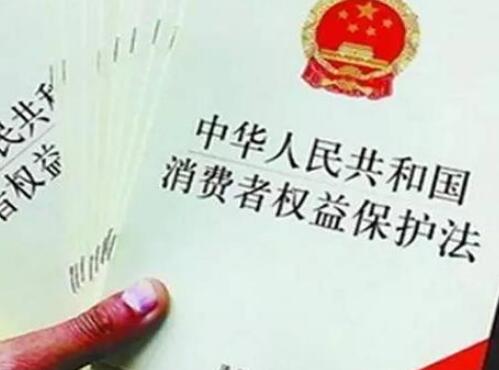 中华人民共和国
消费者权益保护法
民共和
者权益